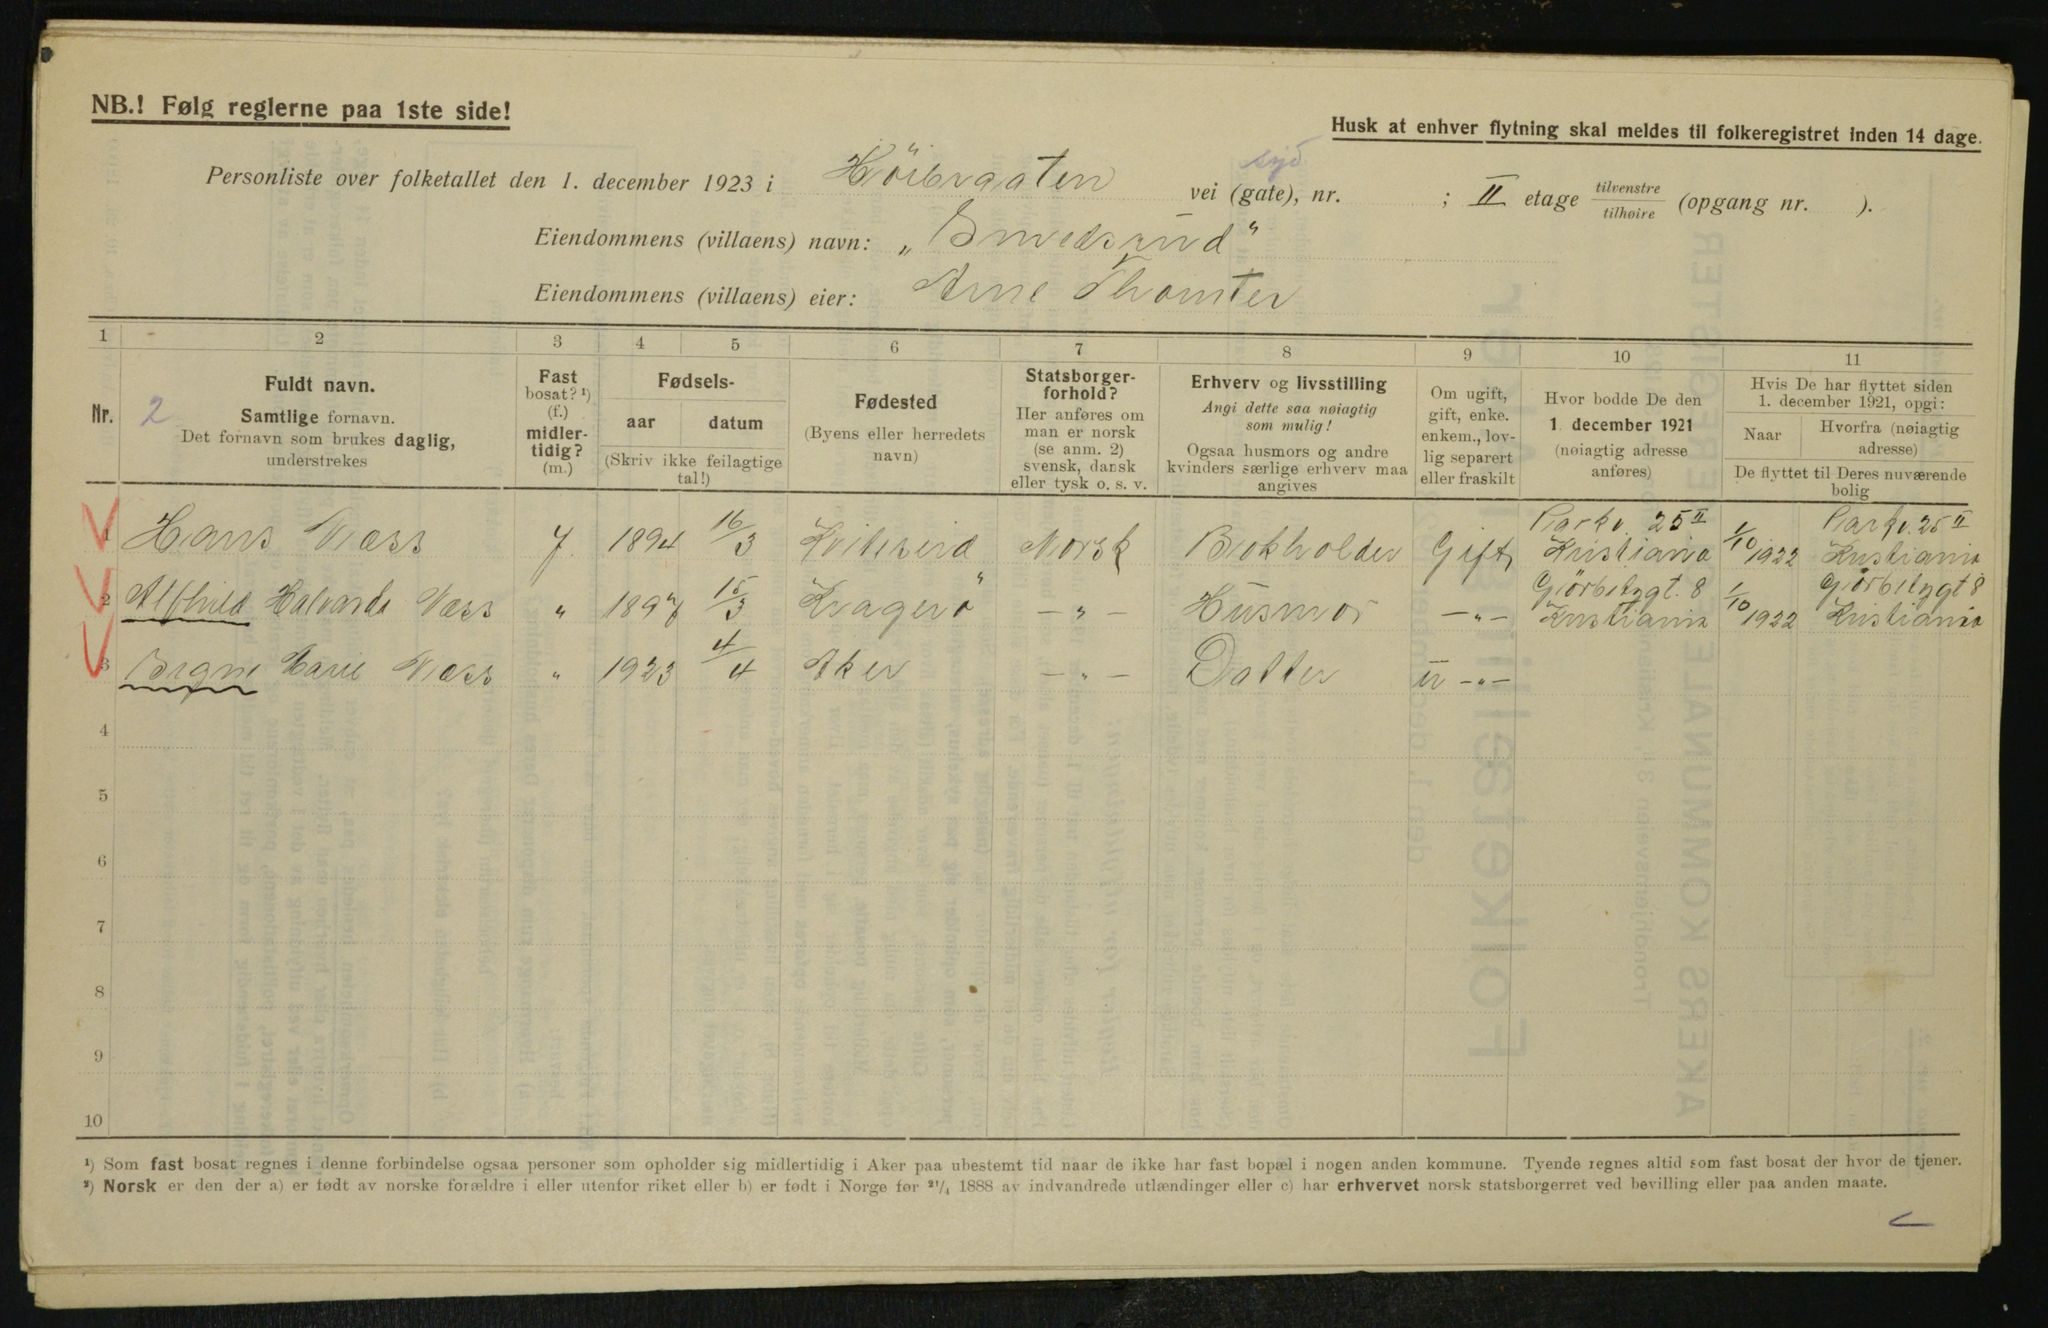 NB.! Følg reglerne paa 1ste side!
Husk at enhver flytning skal meldes til folkeregistret inden 14 dage.
syd
Personliste over folketallet den 1. december 1923 i Höibraaten vei (gate), nr. ; II etage tilvenstre tilhøire (opgang nr. ).
Eiendommens (villaens) navn: „Smedsrud"
Eiendommens (villaens) eier: Arne Thomter
1 2 3 4 5 6 7 8 9 10 11
Nr.
2
Fuldt navn.
Samtlige fornavn.
Det fornavn som brukes daglig,
understrekes
Fast
bosat? ¹)
(f.)
midler-
tidig?
(m.)
Fødsels-
aar datum
(Skriv ikke feilagtige
tal!)
Fødested
(Byens eller herredets
navn)
Statsborger-
forhold?
Her anføres om
man er norsk
(se anm. 2)
svensk, dansk
eller tysk o. s. v.
Erhverv og livsstilling
Angi dette saa nøiagtig
som mulig!
Ogsaa husmors og andre
kvinders særlige erhverv maa
angives
Om ugift,
gift, enke.
enkem., lov-
lig separert
eller fraskilt
Hvor bodde De den
1. december 1921
(nøiagtig adresse
anføres)
Hvis De har flyttet siden
1. december 1921, opgi:
Naar Hvorfra (nøiagtig
adresse)
De flyttet til Deres nuværende
bolig
Parkv. 25 II Parkv. 25 II
1 Hans Næss f. 1894 16/3 Kviteseid Norsk Bokholder Gift Kristiania 1/10 1922 Kristiania
Gjörbitzgt. 8 Gjörbitzgt 8
2 Alfhild Halvarda Næss " 1897 15/3 Kragerö — " — Husmor — " — Kristiania 1/10 1922 Kristiania
3 Signe Marie Næss " 1923 4/4 Aker — " — Datter u — " —
4
5
6
7
8
9
10
¹) Som fast bosat regnes i denne forbindelse ogsaa personer som opholder sig midlertidig i Aker paa ubestemt tid naar de ikke har fast bopæl i nogen anden kommune. Tyende regnes altid som fast bosat der hvor de tjener.
²) Norsk er den der a) er født av norske forældre i eller utenfor riket eller b) er født i Norge før ²¹/₄ 1888 av indvandrede utlændinger eller c) har erhvervet norsk statsborgerret ved bevilling eller paa anden maate.